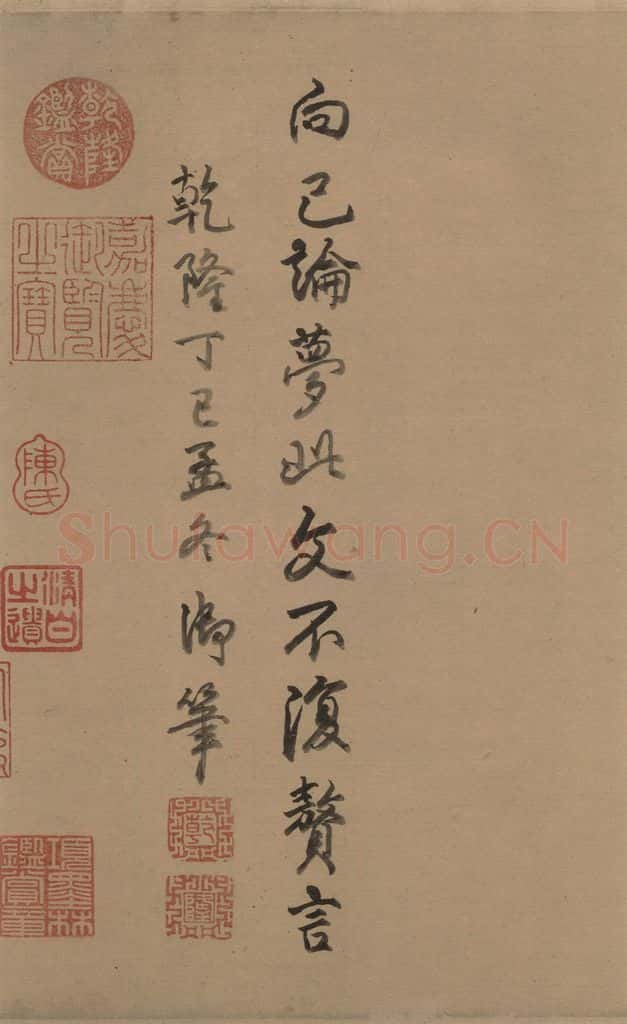 向已論夢此文不復贅言
乾隆丁巳孟冬御筆
乾隆鑑賞
嘉慶御覽之寶
陳氏
清白之遺
項墨林鑑賞章
Shufawang.CN